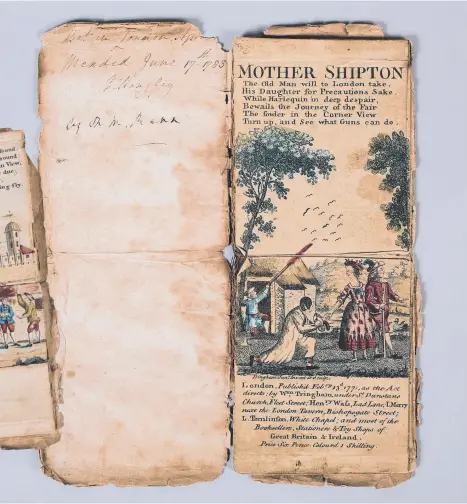 ound
round
n View,
due;
ing fly.
Mended June 17th 1785
MOTHER SHIPTON
The Old Man will to London take,
His Daughter for Precautions Sake.
While Harlequin in deep despair,
Bewails the Journey of the Fair
The fowler in the Corner View
Turn up, and See what Guns can do.
London, Publish'd Feby. 13th 1771, as the Act
directs; by Wm. Tringham, under St. Dunstans
Church, Fleet Street; Heny. Wass, Lad Lane; I. Merry
near the London Tavern, Bishopsgate Street;
L. Tomlinson, White Chapel; and most of the
Booksellers, Stationers & Toy Shops of
Great Britain & Ireland.
Price Six Pence Colour'd 1 Shilling